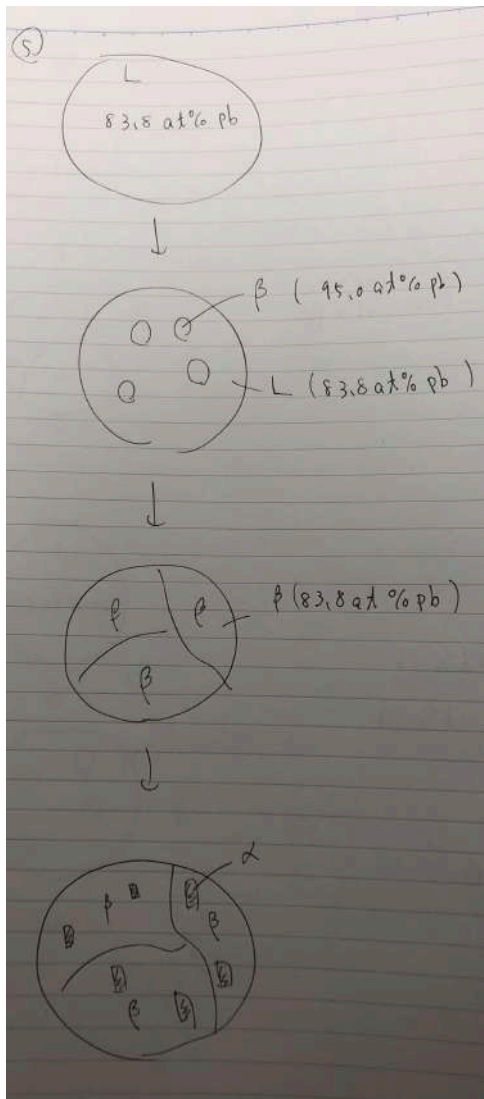 ⑤
L
83,8 at% pb
β (95,0 at% pb)
L (83,8 at% pb)
β β β (83,8 at % pb)
β
α
β β
β